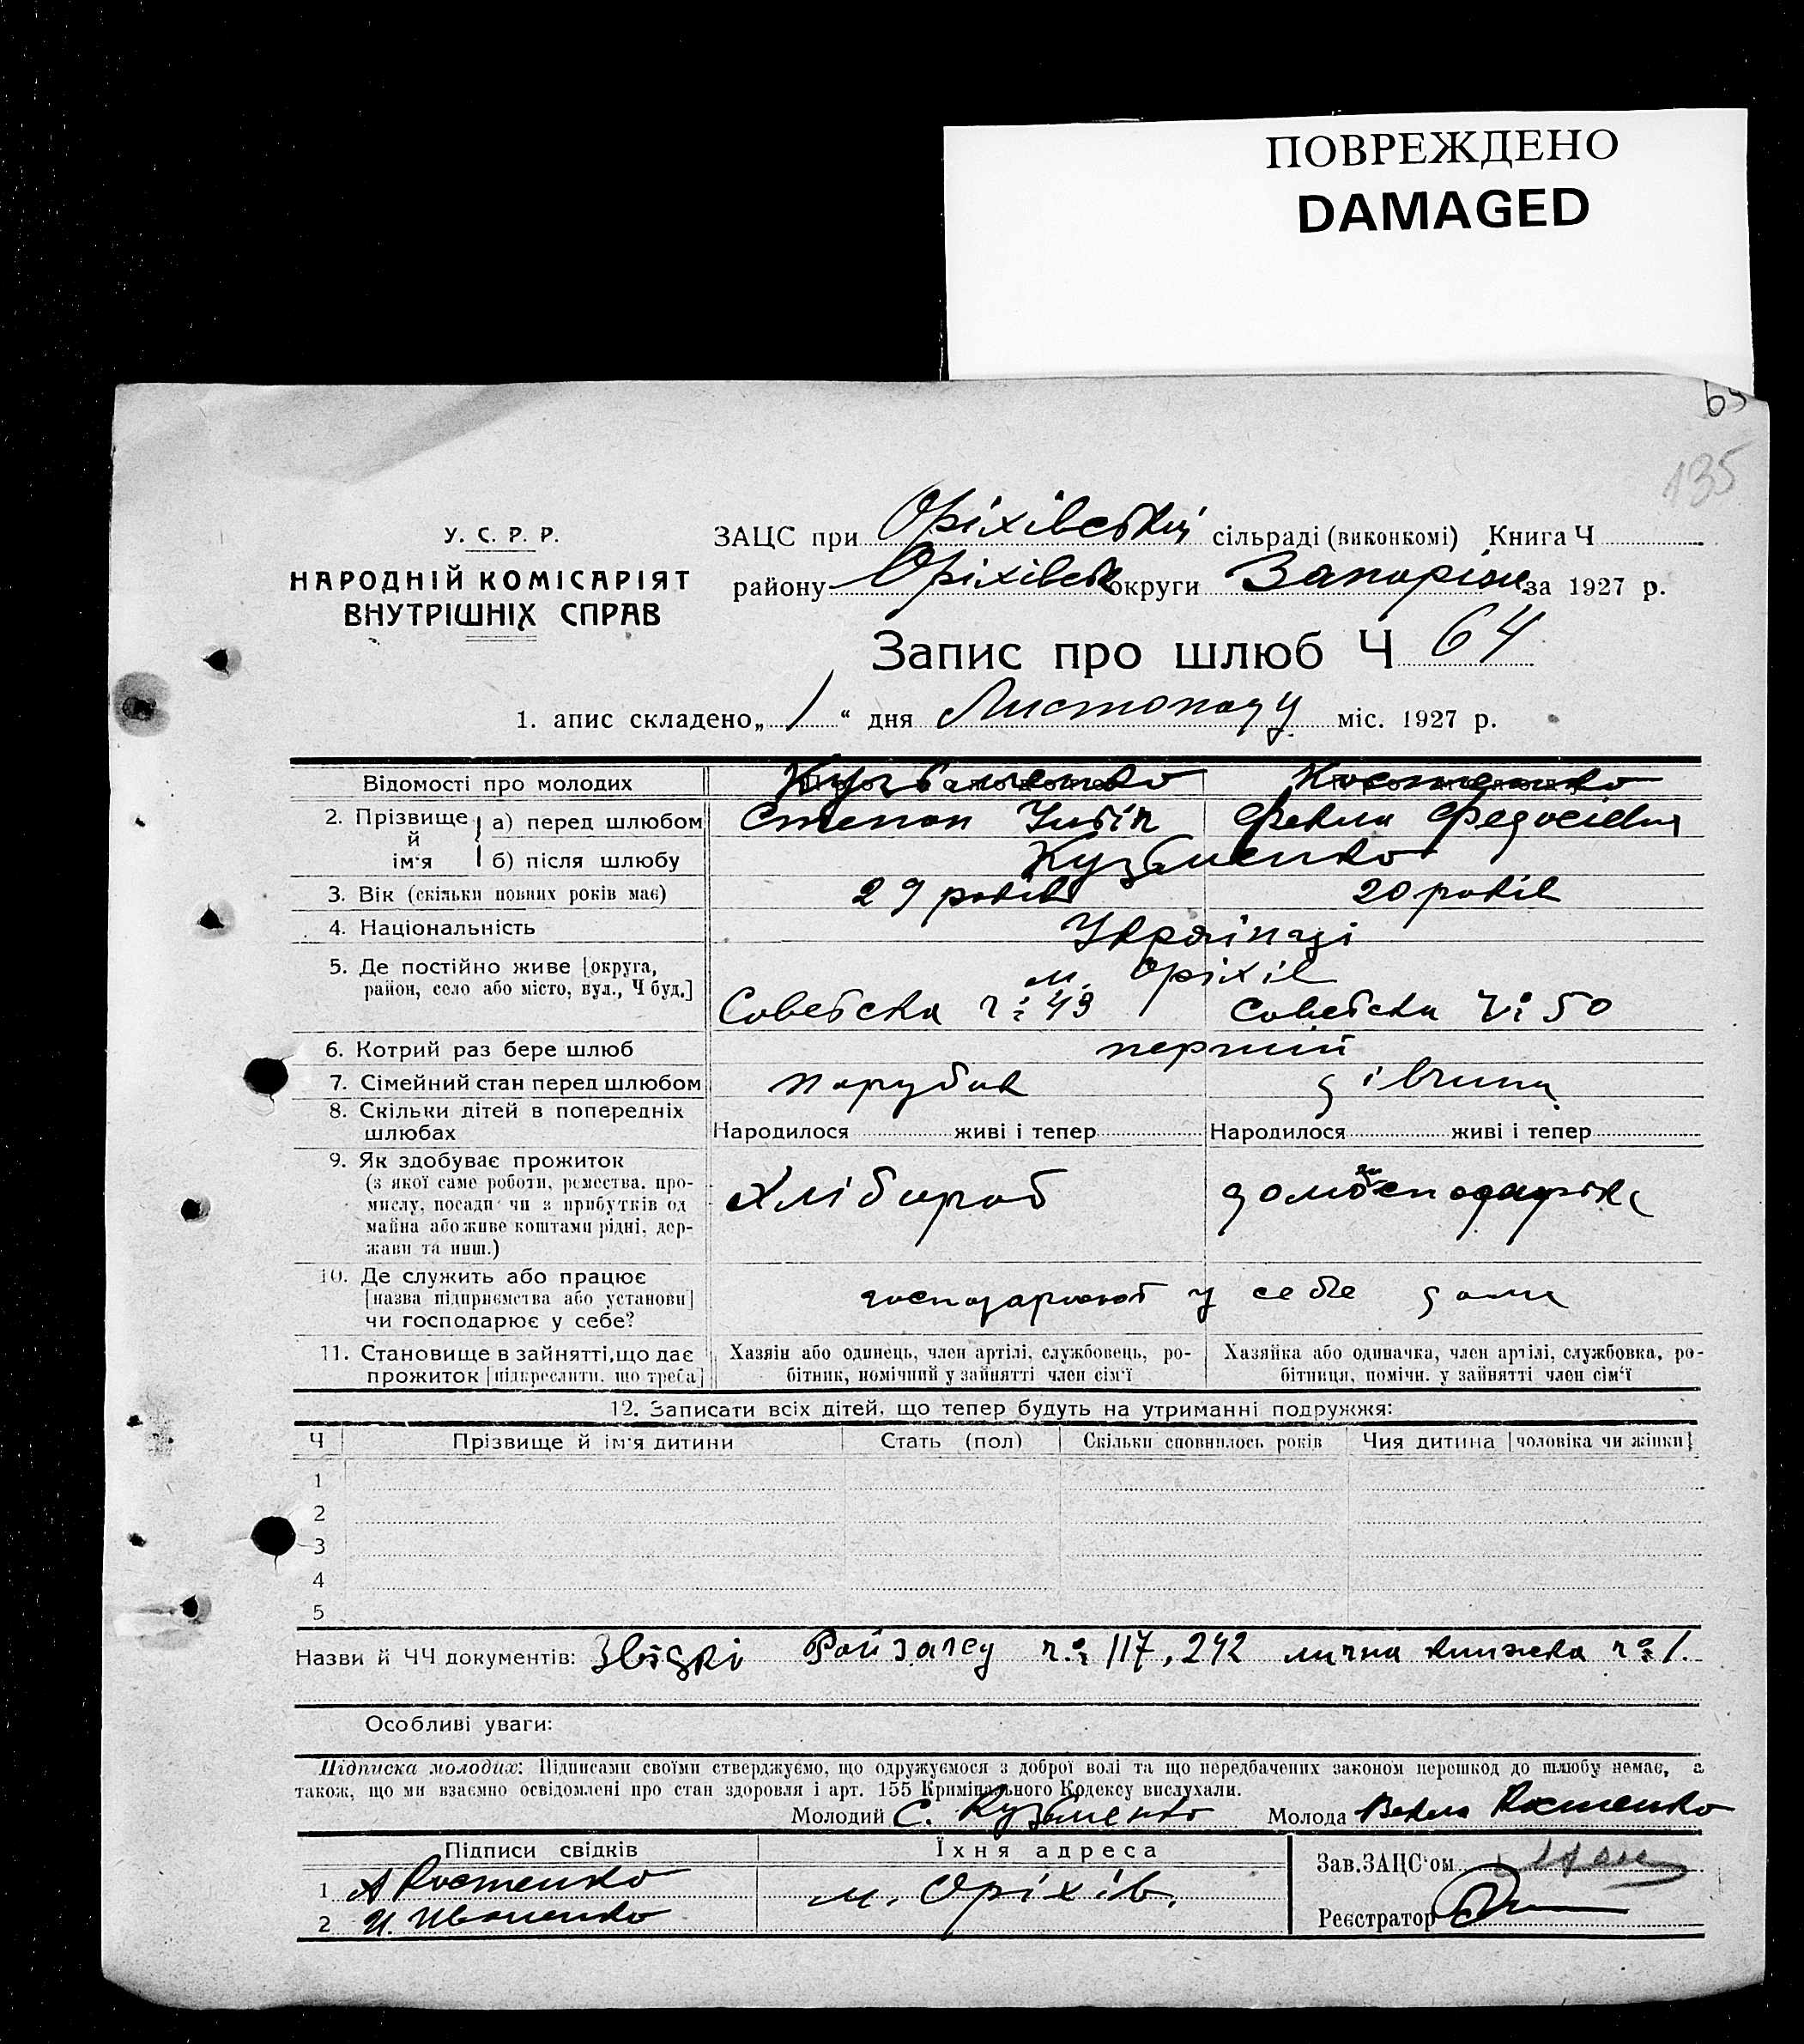 ПОВРЕЖДЕНО
DAMAGED
135
У. С. Р. Р.
НАРОДНІЙ КОМІСАРІЯТ
ВНУТРІШНІХ СПРАВ
ЗАЦС при Оріхівській сільраді (виконкомі) Книга Ч
району Оріхівськ округи Запоріж за 1927 р.
Запис про шлюб Ч 64
1. апис складено „ 1 “ дня Листопаду міс. 1927 р.
Відомості про молодих Кузьменко Костенко
2. Прізвище й ім'я а) перед шлюбом Степан Векла Федосіевна
б) після шлюбу Кузьменко
3. Вік (скільки повних років має) 29 років 20 років
4. Національність Українці
5. Де постійно живе [округа, м. Оріхів
район, село або місто, вул., Ч буд.] Советска ч: 49 Советска ч: 50
6. Котрий раз бере шлюб перший
7. Сімейний стан перед шлюбом парубок дівчина
8. Скільки дітей в попередніх
шлюбах Народилося живі і тепер Народилося живі і тепер
9. Як здобуває прожиток
(з якої саме роботи, ремества, про-
мислу, посади чи з прибутків од
майна або живе коштами рідні, дер-
жави та инш.) Хлібороб
10. Де служить або працює
[назва підприємства або установи] господарюют у себе дома
чи господарює у себе?
11. Становище в зайнятті, що дає Хазяїн або одинець, член артілі, службовець, ро- Хазяйка або одиначка, член артілі, службовка, ро-
прожиток [підкреслити, що треба] бітник, помічний у зайнятті член сім'ї бітниця, помічн. у зайнятті член сім'ї
12. Записати всіх дітей, що тепер будуть на утриманні подружжя:
Ч Прізвище й ім'я дитини Стать (пол) Скільки сповнилось років Чия дитина [чоловіка чи жінки]
1
2
3
4
5
Назви й ЧЧ документів: Звідкі Райзагсу ч: 117, 242 лична книжка ч: 1.
Особливі уваги:
Підписка молодих: Підписами своїми стверджуємо, що одружуємося з доброї волі та що передбачених законом перешкод до шлюбу немає, а
також, що ми взаємно освідомлені про стан здоровля і арт. 155 Кримінального Кодексу вислухали.
Молодий С. Кузьменко Молода Векла Костенко
Підписи свідків Їхня адреса Зав.ЗАЦС'ом
1 А Костенко м. Оріхів.
2 И. Иваненко Реєстратор